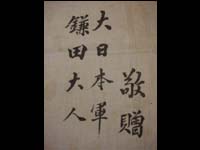 敬贈
大日本軍
鎌田大人